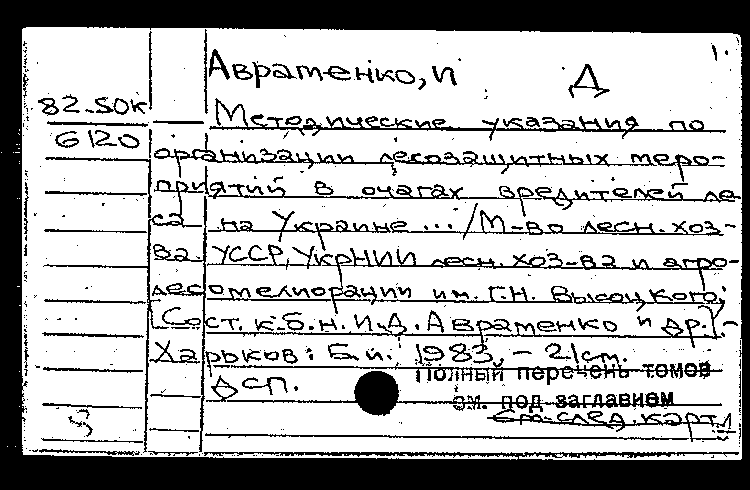 Авраменко, И Д
1.
82-50к
6120
Методические указания по
организации лесозащитных меро-
приятий в очагах вредителей ле
са на Украине ... / М-во лесн. хоз-
ва УССР, УкрНИИ лесн. хоз-ва и агро-
лесомелиорации им. Г.Н. Высоцкого;
[Сост. к.б.н. И.Д. Авраменко и др.].-
Харьков: Б.и. 1983. - 21 см.
ДСП.
Полный перечень томов
см. под заглавием
См. след. карт.